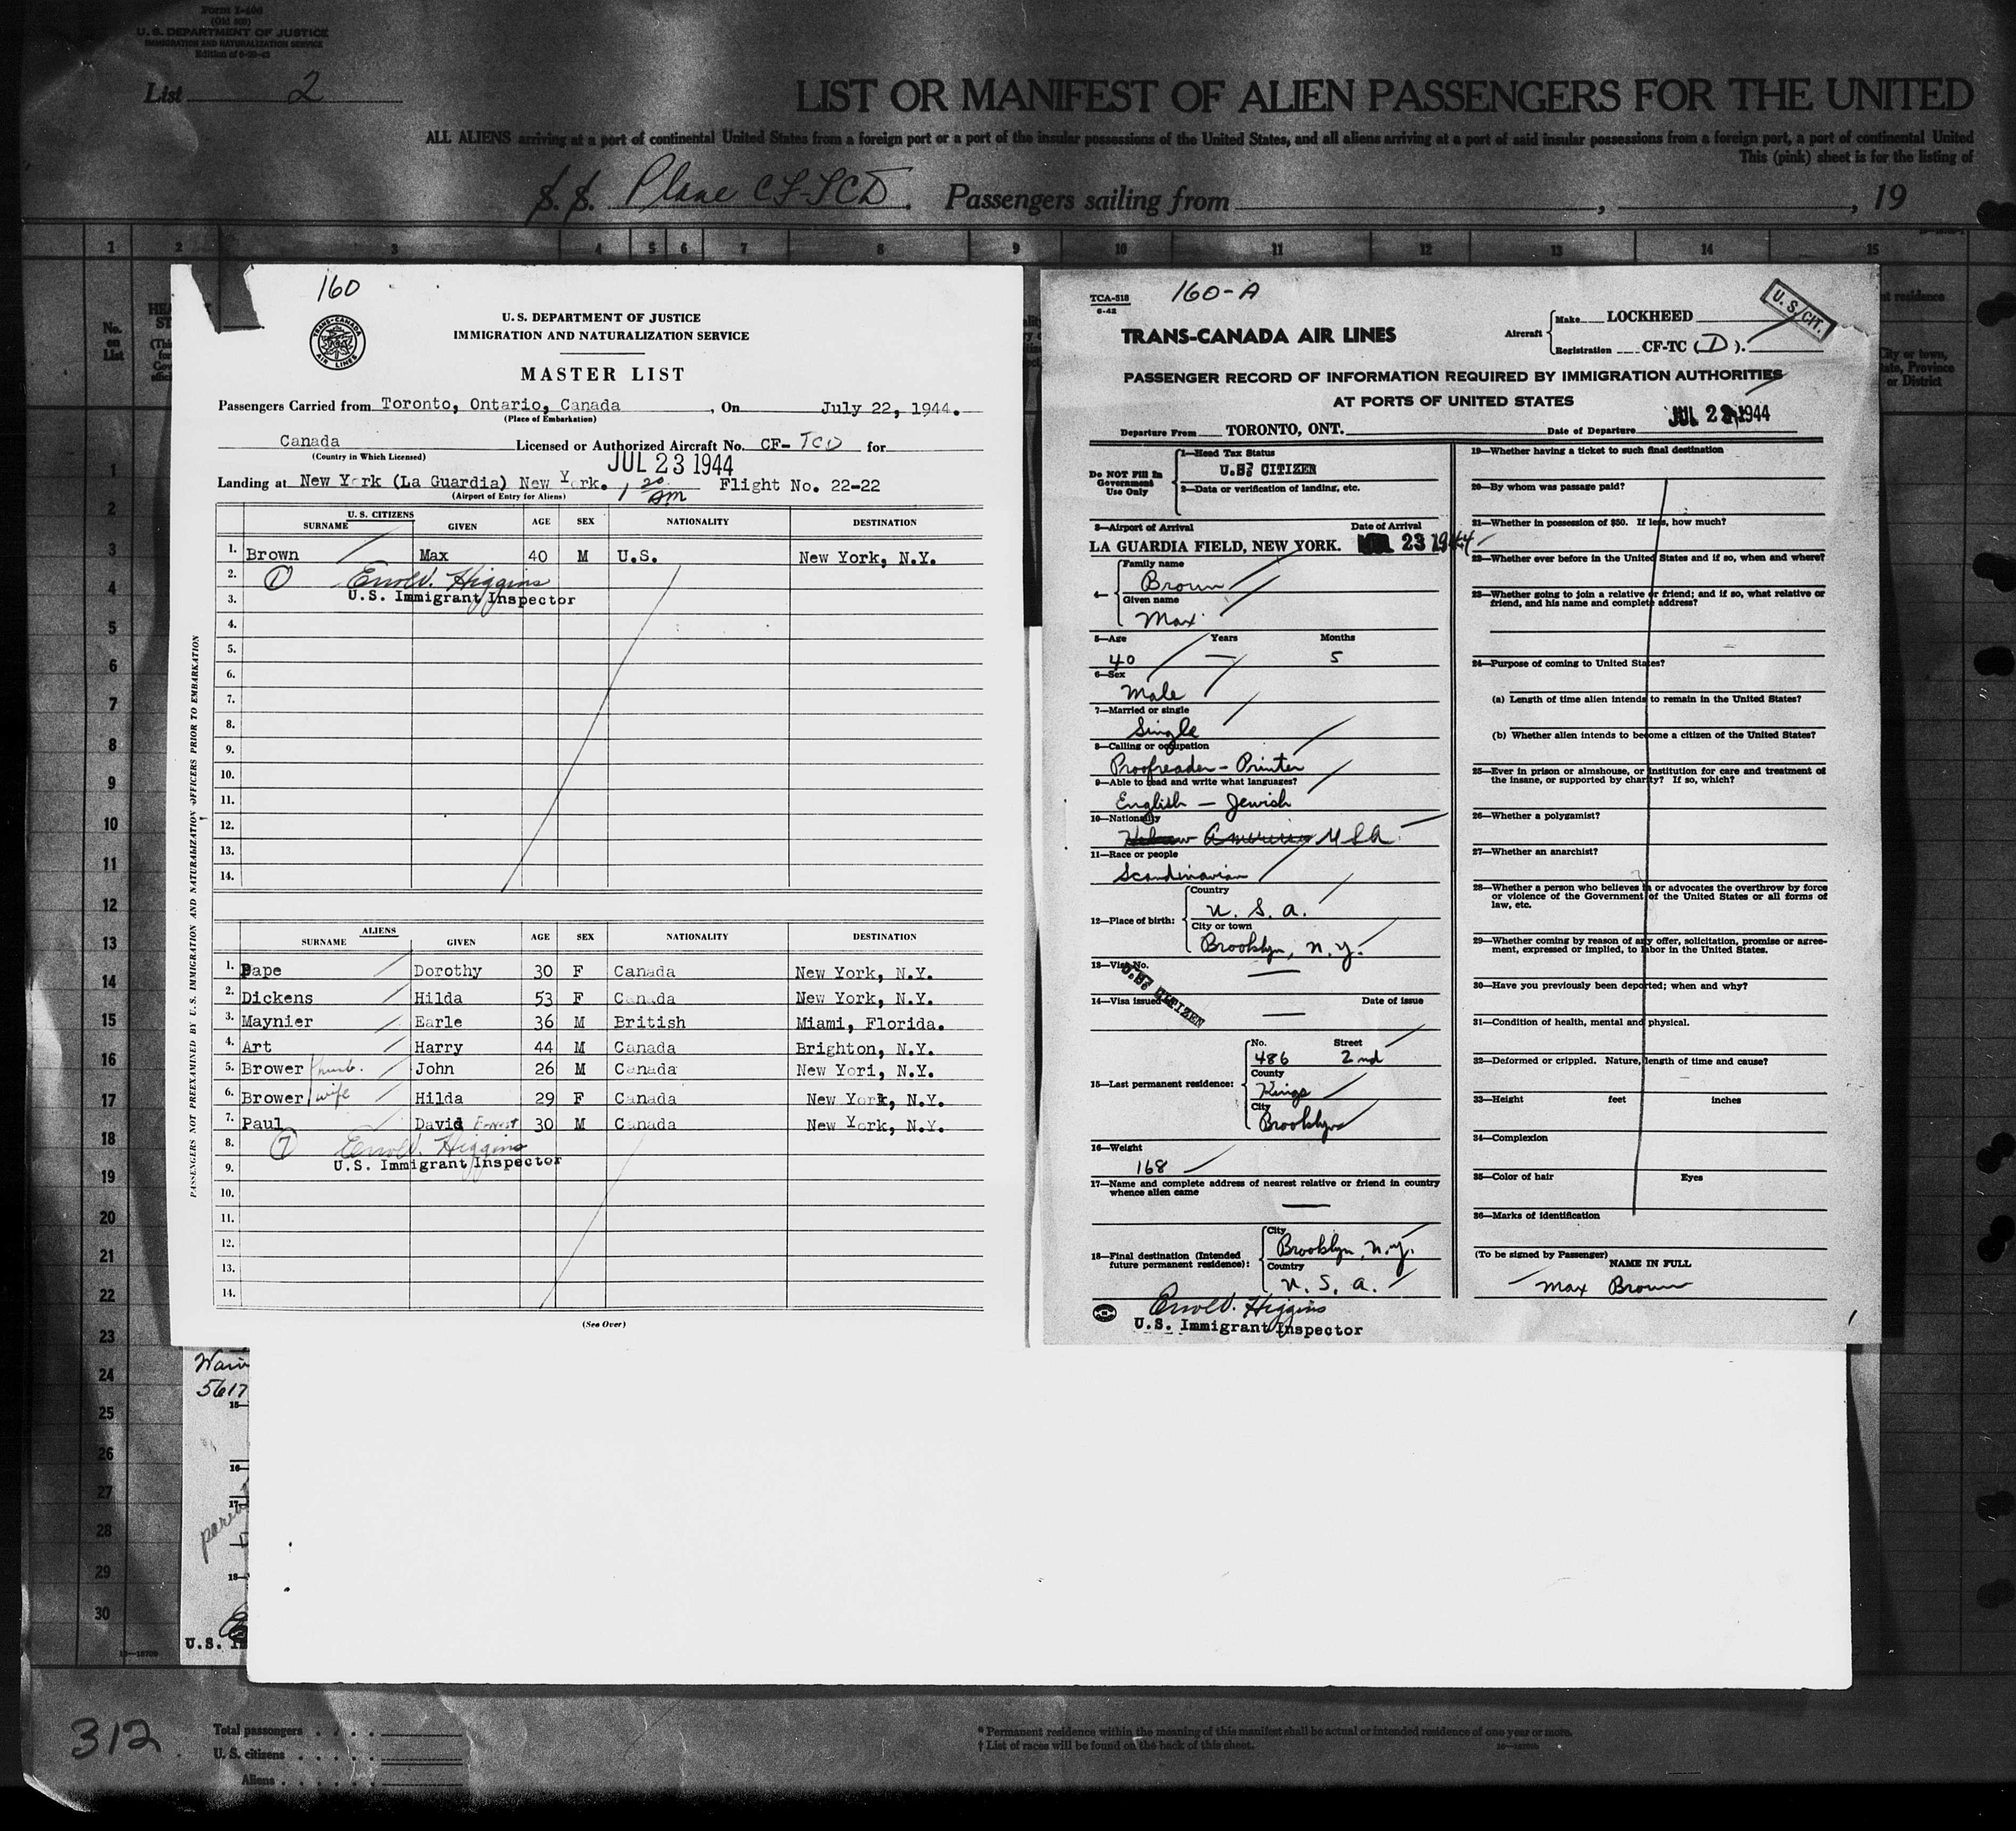 Form I-466
(Old 500)
U. S. DEPARTMENT OF JUSTICE
IMMIGRATION AND NATURALIZATION SERVICE
List 2
LIST OR MANIFEST OF ALIEN PASSENGERS FOR THE UNITED
ALL ALIENS arriving at a port of continental United States from a foreign port or a port of the insular possessions of the United States, and all aliens arriving at a port of said insular possessions from a foreign port, a port of continental United
This (pink) sheet is for the listing of
S. S. Plane CF-TCD. Passengers sailing from , , 19
1 2 3 4 5 6 7 8 9 10 11 12 13 14 15
No.
on
List
1
2
3
4
5
6
7
8
9
10
11
12
13
14
15
16
17
18
19
20
21
22
23
24
25
26
27
28
29
30
160
TRANS-CANADA AIR LINES
U. S. DEPARTMENT OF JUSTICE
IMMIGRATION AND NATURALIZATION SERVICE
MASTER LIST
Passengers Carried from Toronto, Ontario, Canada, On July 22, 1944.
(Place of Embarkation)
Canada Licensed or Authorized Aircraft No. CF- TCD for
(Country in Which Licensed)
JUL 23 1944
Landing at New York (La Guardia) New York. 1 20 AM Flight No. 22-22
(Airport of Entry for Aliens)
U. S. CITIZENS
SURNAME GIVEN AGE SEX NATIONALITY DESTINATION
1. Brown Max 40 M U.S. New York, N.Y.
2. 1 Errol V. Higgins
3. U.S. Immigrant Inspector
4.
5.
6.
7.
8.
9.
10.
11.
12.
13.
14.
ALIENS
SURNAME GIVEN AGE SEX NATIONALITY DESTINATION
1. Pape Dorothy 30 F Canada New York, N.Y.
2. Dickens Hilda 53 F Canada New York, N.Y.
3. Maynier Earle 36 M British Miami, Florida.
4. Art Harry 44 M Canada Brighton, N.Y.
5. Brower husb. John 26 M Canada New Yori, N.Y.
6. Brower wife Hilda 29 F Canada New York, N.Y.
7. Paul David Ernest 30 M Canada New York, N.Y.
8. 7 Errol V. Higgins
9. U.S. Immigrant Inspector
10.
11.
12.
13.
14.
(See Over)
PASSENGERS NOT PREEXAMINED BY U.S. IMMIGRATION AND NATURALIZATION OFFICERS PRIOR TO EMBARKATION
TCA-518
6-42
160-A
U. S. CIT.
TRANS-CANADA AIR LINES
Aircraft
Make LOCKHEED
Registration CF-TC (D).
PASSENGER RECORD OF INFORMATION REQUIRED BY IMMIGRATION AUTHORITIES
AT PORTS OF UNITED STATES
Departure From TORONTO, ONT. Date of Departure JUL 22 1944
Do NOT Fill In
Government
Use Only
1—Head Tax Status
U.S. CITIZEN
2—Data or verification of landing, etc.
3—Airport of Arrival Date of Arrival
LA GUARDIA FIELD, NEW YORK. 23 1944
4—
Family name
Brown
Given name
Max
5—Age Years Months
40 — 5
6—Sex
Male
7—Married or single
Single
8—Calling or occupation
Proofreader - Printer
9—Able to read and write what languages?
English - Jewish
10—Nationality
Hebrew American USA
11—Race or people
Scandinavian
12—Place of birth:
Country
U. S. A.
City or town
Brooklyn, N.Y.
13—Visa No.
U.S. CITIZEN
14—Visa issued Date of issue
15—Last permanent residence:
No. Street
486 2nd
County
Kings
City
Brooklyn
16—Weight
168
17—Name and complete address of nearest relative or friend in country
whence alien came
18—Final destination (Intended
future permanent residence):
City
Brooklyn, N.Y.
Country
U. S. A.
Errol V. Higgins
U.S. Immigrant Inspector
19—Whether having a ticket to such final destination
20—By whom was passage paid?
21—Whether in possession of $50. If less, how much?
22—Whether ever before in the United States and if so, when and where?
23—Whether going to join a relative or friend; and if so, what relative or
friend, and his name and complete address?
24—Purpose of coming to United States?
(a) Length of time alien intends to remain in the United States?
(b) Whether alien intends to become a citizen of the United States?
25—Ever in prison or almshouse, or institution for care and treatment of
the insane, or supported by charity? If so, which?
26—Whether a polygamist?
27—Whether an anarchist?
28—Whether a person who believes in or advocates the overthrow by force
or violence of the Government of the United States or all forms of
law, etc.
29—Whether coming by reason of any offer, solicitation, promise or agree-
ment, expressed or implied, to labor in the United States.
30—Have you previously been deported; when and why?
31—Condition of health, mental and physical.
32—Deformed or crippled. Nature, length of time and cause?
33—Height feet inches
34—Complexion
35—Color of hair Eyes
36—Marks of identification
(To be signed by Passenger)
NAME IN FULL
Max Brown
5617
15—
16—
17—
18—
U.S. I
312
Total passengers
U. S. citizens
Aliens
* Permanent residence within the meaning of this manifest shall be actual or intended residence of one year or more.
† List of races will be found on the back of this sheet.